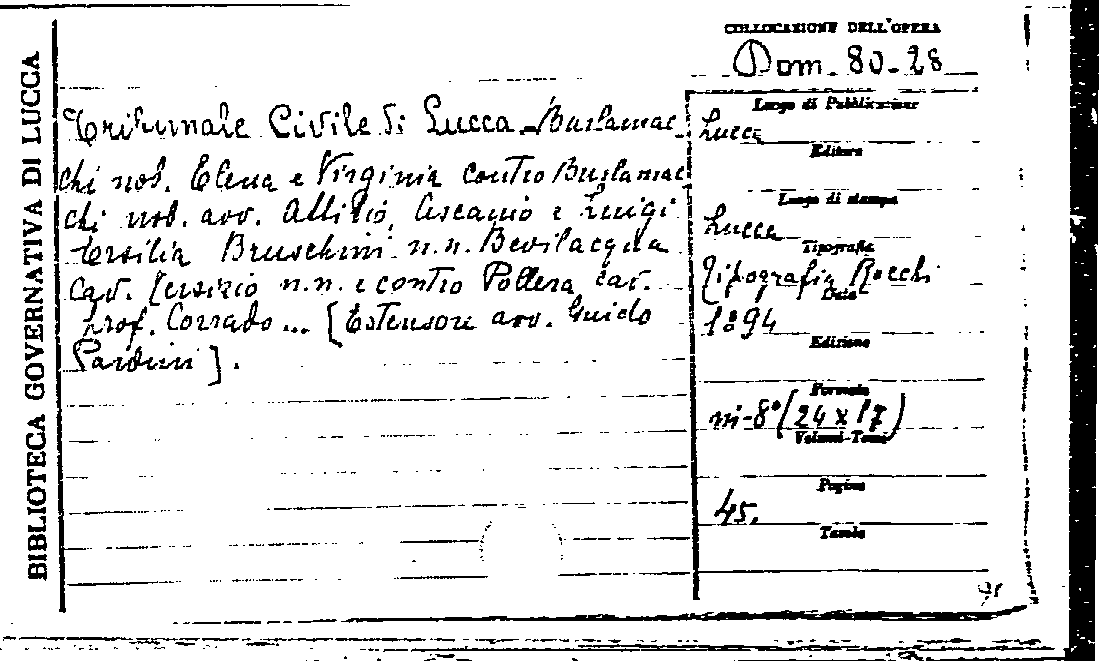 BIBLIOTECA GOVERNATIVA DI LUCCA
COLLOCAZIONE DELL'OPERA
Dom. 80-28
Tribunale Civile di Lucca - Burlamac
chi nob. Elena e Virginia contro Burlamac
chi nob. avv. Ascanio e Luigi
Ersilia Bruschini n.n. Bevilacqua
Cav. n.n. e contro Pollera cav.
prof. Corrado... [Estensore avv. Guido
Pardini].
Luogo di Pubblicazione
Lucca
Editore
Luogo di stampa
Lucca
Tipografia
Tipografia Rocchi
Data
1894
Edizione
Formato
in-8° (24 x 17)
Volumi-Tomi
Pagine
45.
Tavole